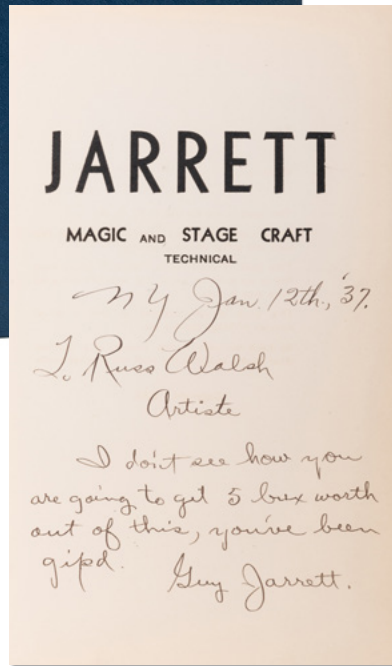 JARRETT
MAGIC AND STAGE CRAFT
TECHNICAL
N Y Jan. 12th, '37.
T. Russ Walsh
Artiste
I don't see how you
are going to get 5 bux worth
out of this, you've been
gipd.
Guy Jarrett.